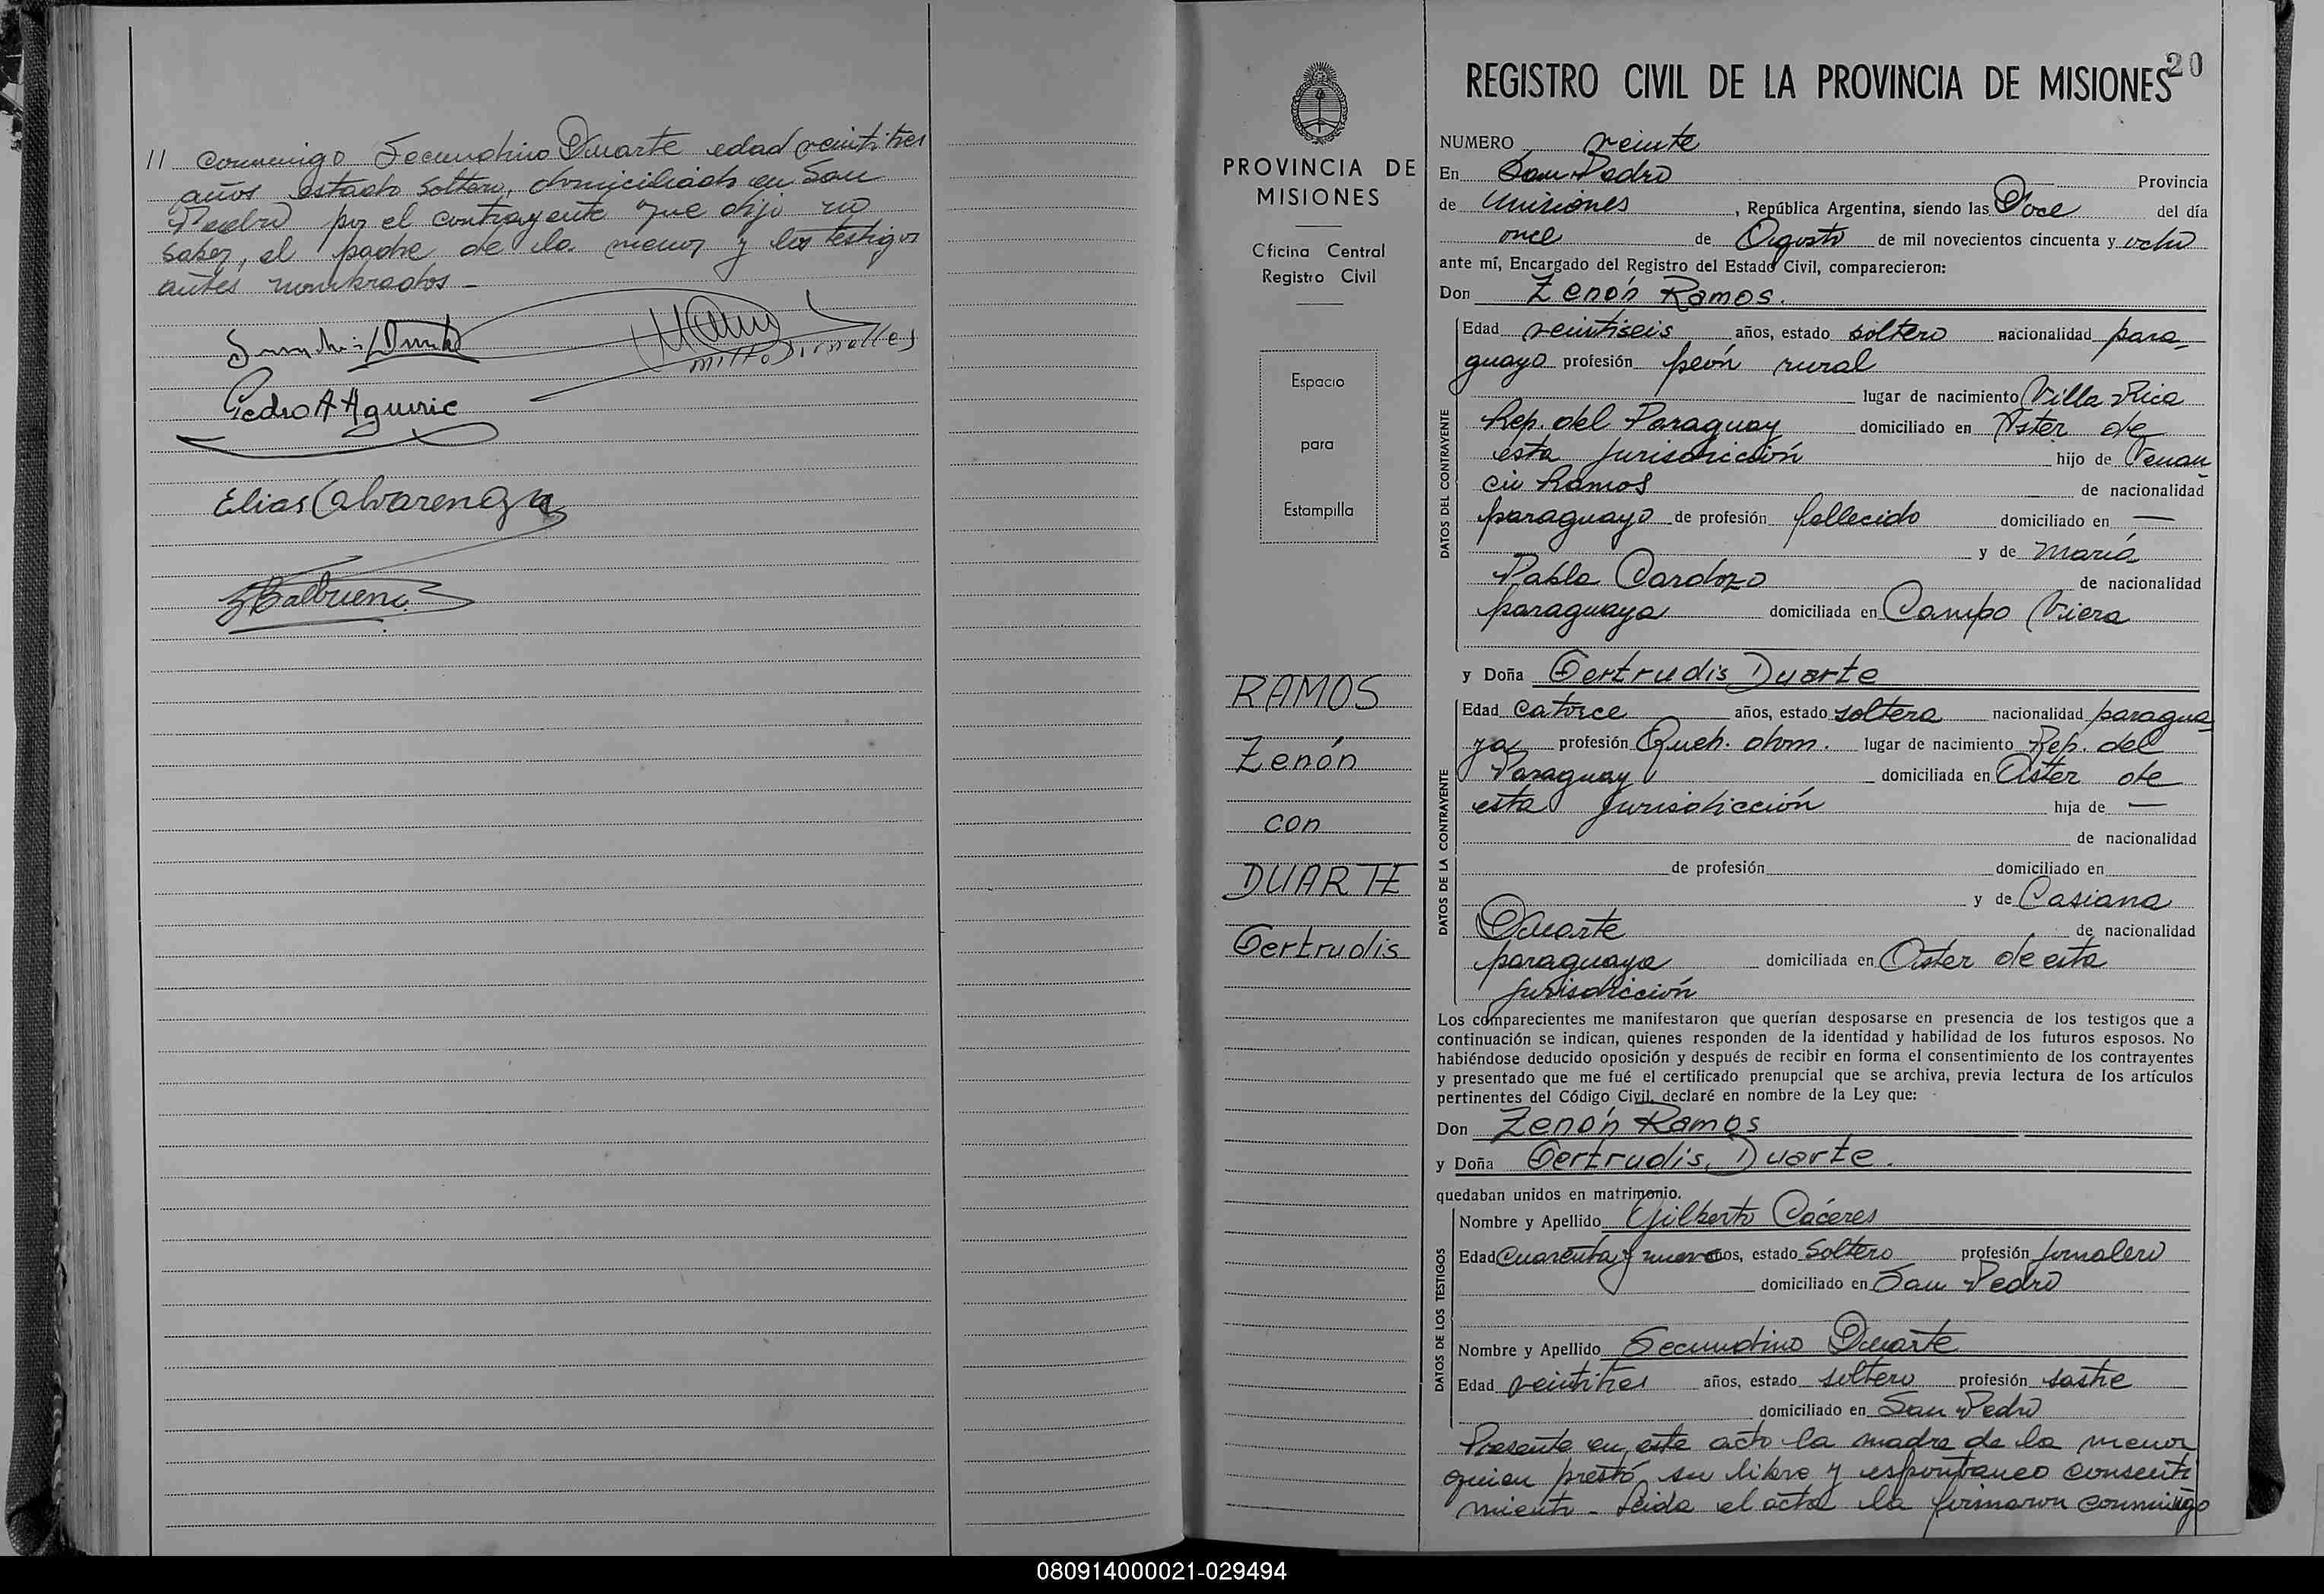 11 conmigo Secundino Duarte edad veintitres
años estado soltero, domiciliado en San
Pedro por el contrayente que dijo no
saber, el padre de la menor y los testigos
antes nombrados -
Pedro A Aguirre
Elias Calvarenga
PROVINCIA DE
MISIONES
Oficina Central
Registro Civil
Espacio
para
Estampilla
RAMOS
Zenón
con
DUARTE
Gertrudis
20
REGISTRO CIVIL DE LA PROVINCIA DE MISIONES
NUMERO veinte
En San Pedro Provincia
de Misiones, República Argentina, siendo las Doce del día
once de Agosto de mil novecientos cincuenta y ocho
ante mí, Encargado del Registro del Estado Civil, comparecieron:
Don Zenón Ramos.
DATOS DEL CONTRAYENTE
Edad veintiseis años, estado soltero nacionalidad para-
guayo profesión peón rural
lugar de nacimiento Villa Rica
Rep. del Paraguay domiciliado en Aster de
esta jurisdicción hijo de Venan
cio Ramos de nacionalidad
paraguayo de profesión fallecido domiciliado en —
y de María
Pabla Cardozo de nacionalidad
paraguaya domiciliada en Campo Viera
y Doña Gertrudis Duarte
DATOS DE LA CONTRAYENTE
Edad catorce años, estado soltera nacionalidad paragua-
ya profesión Queh. dom. lugar de nacimiento Rep. del
Paraguay domiciliada en Aster de
esta jurisdicción hija de —
de nacionalidad
de profesión domiciliado en
y de Casiana
Duarte de nacionalidad
paraguaya domiciliada en Aster de esta
jurisdicción
Los comparecientes me manifestaron que querían desposarse en presencia de los testigos que a
continuación se indican, quienes responden de la identidad y habilidad de los futuros esposos. No
habiéndose deducido oposición y después de recibir en forma el consentimiento de los contrayentes
y presentado que me fué el certificado prenupcial que se archiva, previa lectura de los artículos
pertinentes del Código Civil, declaré en nombre de la Ley que:
Don Zenón Ramos
y Doña Gertrudis Duarte.
quedaban unidos en matrimonio.
DATOS DE LOS TESTIGOS
Nombre y Apellido Gilberto Cáceres
Edad cuarenta y nueve años, estado soltero profesión jornalero
domiciliado en San Pedro
Nombre y Apellido Secundino Duarte
Edad veintitres años, estado soltero profesión sastre
domiciliado en San Pedro
Presente en este acto la madre de la menor
quien prestó su libre y espontaneo consenti
miento - Leida el acta la firmaron conmigo
080914000021-029494